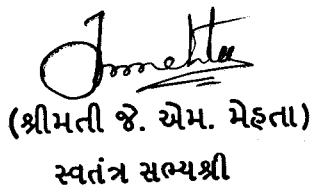 Jmmehta
(શ્રીમતી જે. એમ. મેહતા)
સ્વતંત્ર સભ્યશ્રી